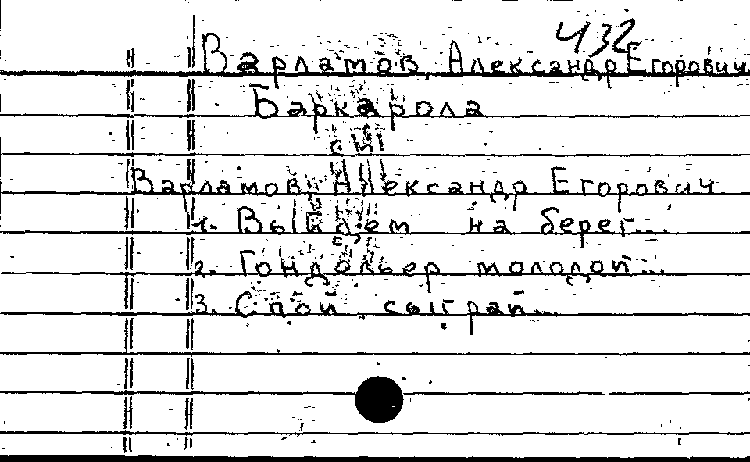 432
Варламов, Александр Егорович
Баркарола
Варламов, Александр Егорович
1. Выйдем на берег...
2. Гондольер молодой...
3. Спой, сыграй...